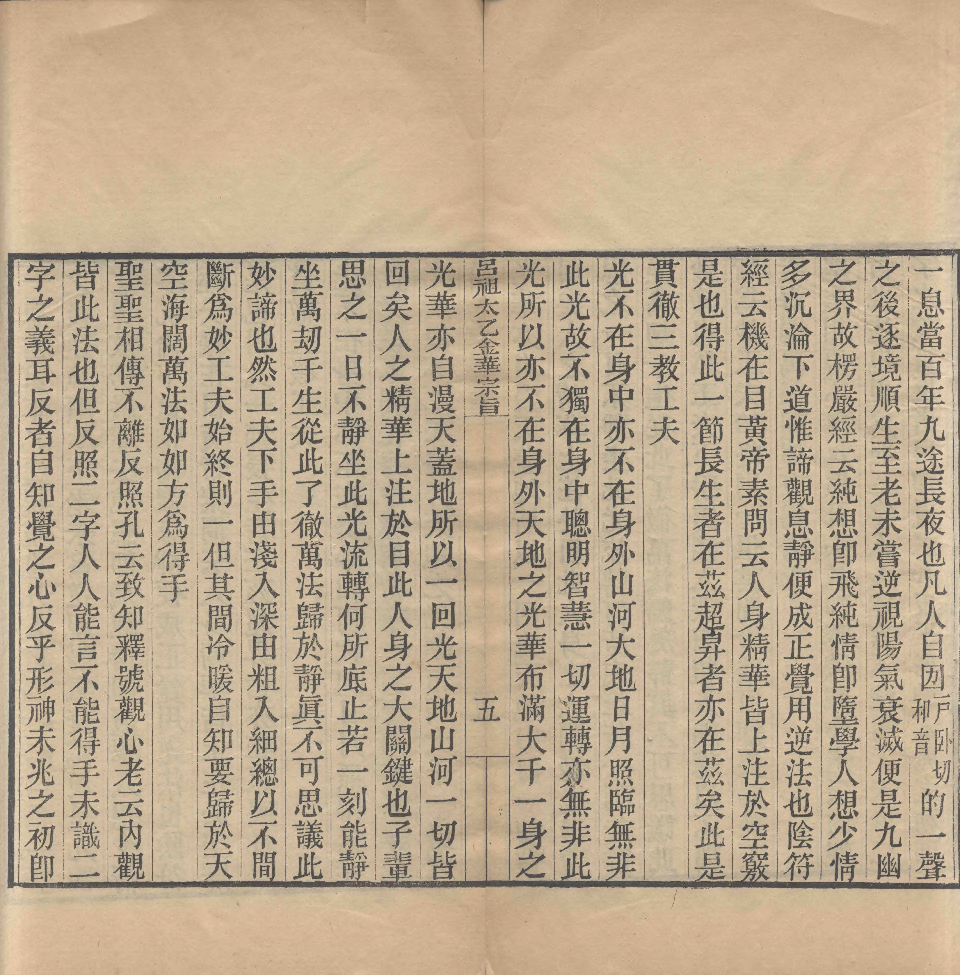 一息當百年九途長夜也凡人自㘞戶卧切和音的一聲
之後逐境順生至老未嘗逆視陽氣衰滅便是九幽
之界故楞嚴經云純想卽飛純情卽墮學人想少情
多沉淪下道惟諦觀息靜便成正覺用逆法也陰符
經云機在目黃帝素問云人身精華皆上注於空竅
是也得此一節長生者在茲超昇者亦在茲矣此是
貫徹三教工夫
光不在身中亦不在身外山河大地日月照臨無非
此光故不獨在身中聰明智慧一切運轉亦無非此
光所以亦不在身外天地之光華布滿大千一身之
呂祖太乙金華宗旨
五
光華亦自漫天蓋地所以一回光天地山河一切皆
回矣人之精華上注於目此人身之大關鍵也子輩
思之一日不靜坐此光流轉何所底止若一刻能靜
坐萬劫千生從此了徹萬法歸於靜眞不可思議此
妙諦也然工夫下手由淺入深由粗入細總以不間
斷爲妙工夫始終則一但其間冷暖自知要歸於天
空海闊萬法如如方爲得手
聖聖相傳不離反照孔云致知釋號觀心老云內觀
皆此法也但反照二字人人能言不能得手未識二
字之義耳反者自知覺之心反乎形神未兆之初卽